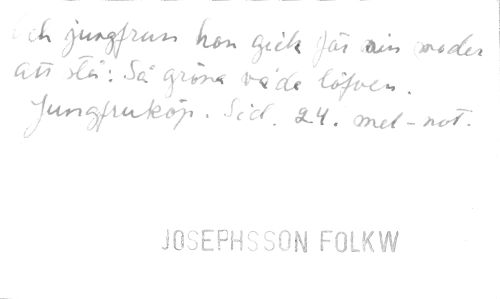 Och jungfrun hon gick för sin moder
att stå: Så gröna väda löfven.
Jungfruköp. Sid. 24. mel-not.
JOSEPHSSON FOLKW